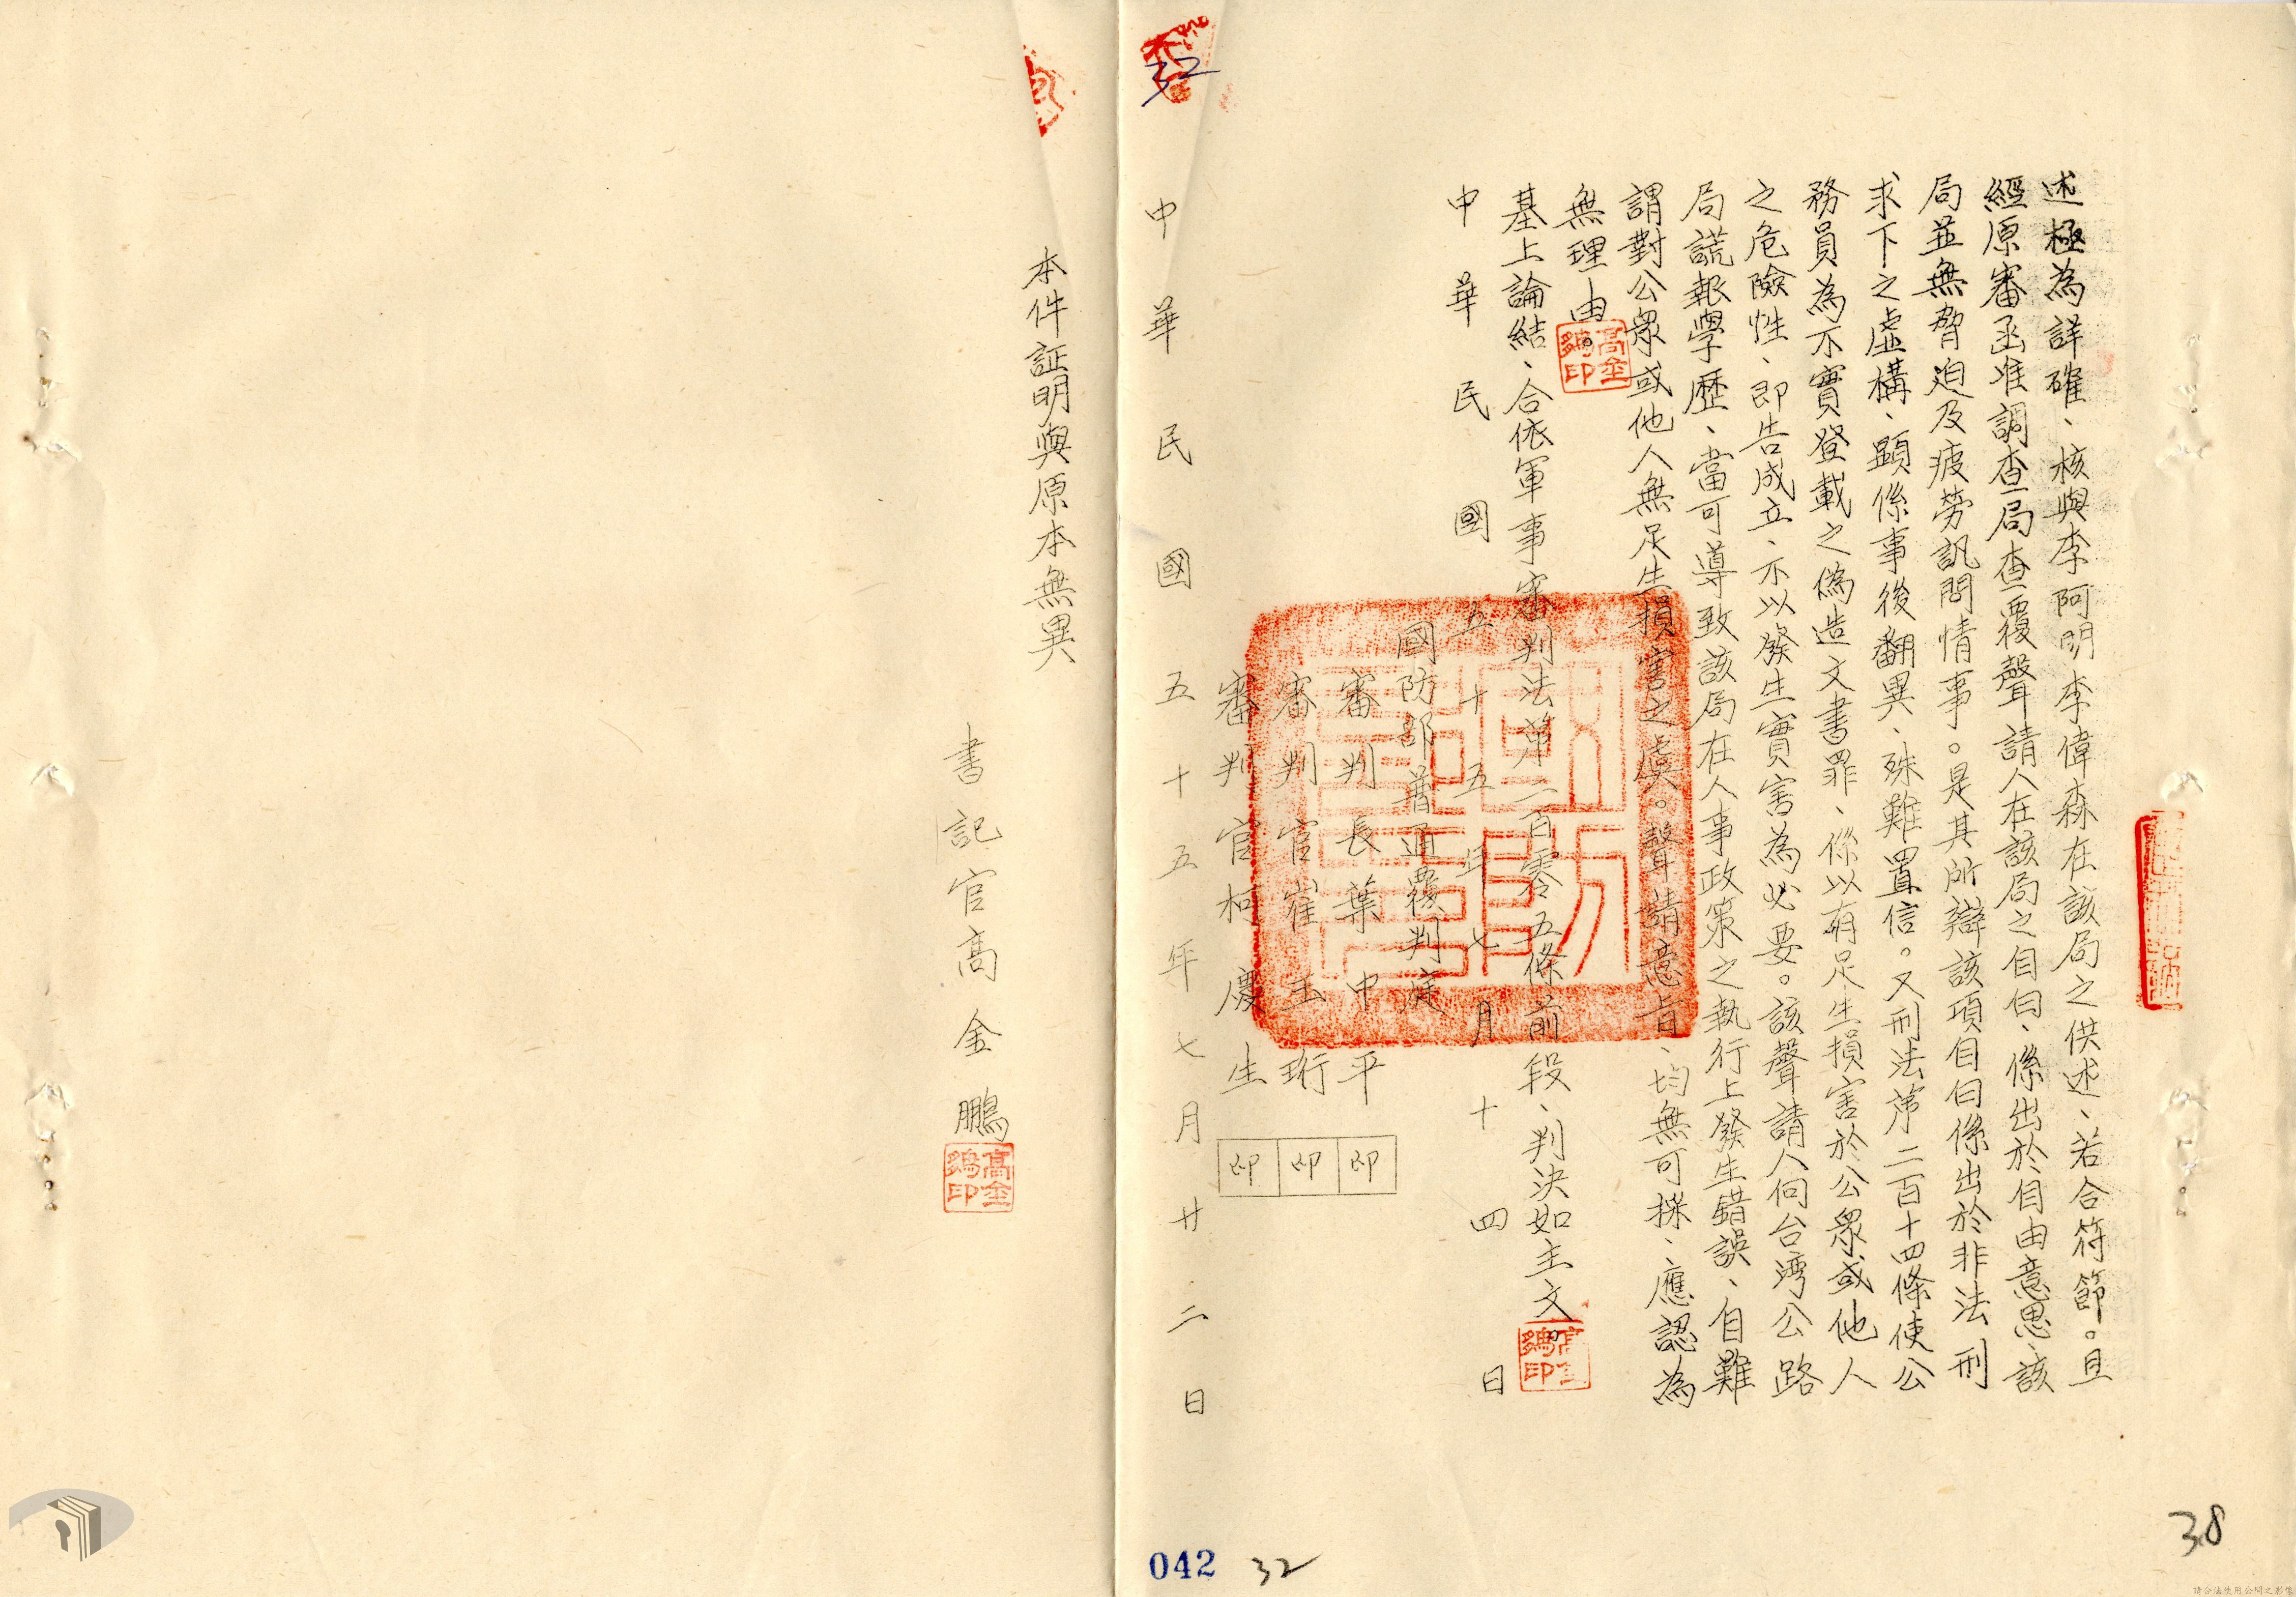 述極為詳確、核與李阿明李偉森在該局之供述、若合符節。且
經原審函准調查局查覆聲請人在該局之自白、係出於自由意思、該
局並無脅迫及疲勞訊問情事。是其所辯該項自白係出於非法刑
求下之虛構、顯係事後翻異、殊難置信。又刑法第二百十四條使公
務員為不實登載之偽造文書罪、係以有足生損害於公眾或他人
之危險性、即告成立、不以發生實害為必要。該聲請人向台湾公路
局謊報學歷、當可導致該局在人事政策之執行上發生錯誤、自難
謂對公眾或他人無足生損害之虞。聲請意旨、均無可採、應認為
無理由。
高金鵬印
基上論結、合依軍事審判法第二百零五條前段、判決如主文。
高金鵬印
中華民國五十五年七月十四日
國防部普通覆判庭
審判長葉中平 印
審判官崔玉珩 印
審判官柯慶生 印
中華民國五十五年七月廿二日
本件証明與原本無異
書記官高金鵬
高金鵬印
32
042
32
38
請合法使用公開之影像